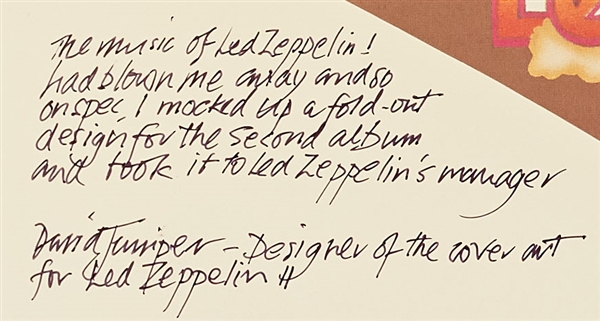 The music of Led Zeppelin!
had blown me away and so
on spec, I mocked up a fold-out
design, for the second album
and took it to Led Zeppelin's manager
David Juniper – Designer of the cover art
for Led Zeppelin II